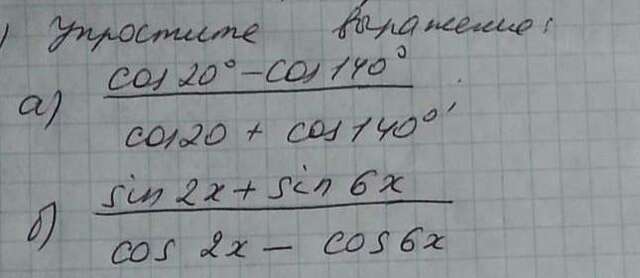 ) Упростите выражение:
а) cos 20° – cos 140°
cos 20 + cos 140°,
б) sin 2x + sin 6x
cos 2x – cos 6x